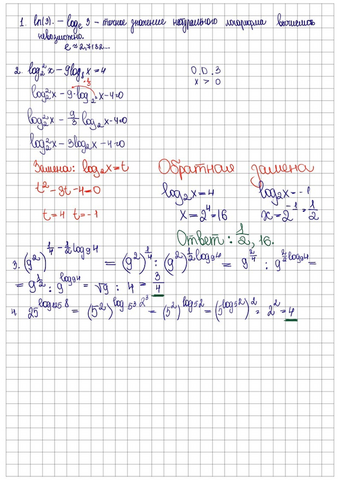 1. ln(3). – logₑ 3 – точное значение натурального логарифма вычислить невозможно.
e ≈ 2,7182...
2. log₂² x – 9log₈ x = 4 О.О.З
log₂² x – 9·log₂³ x – 4 = 0 x > 0
log₂² x – 9/3 log₂ x – 4 = 0
log₂² x – 3log₂ x – 4 = 0
Замена: log₂ x = t Обратная замена
t² – 3t – 4 = 0 log₂ x = 4 log₂ x = -1
t = 4 t = -1 x = 2⁴ = 16 x = 2⁻¹ = 1/2
Ответ: 1/2, 16.
3. (9²)^(1/4 – 1/2 log₉ 4) = (9²)^(1/4) : (9²)^(1/2 log₉ 4) = 9^(2/4) : 9^(2/2 log₉ 4) =
= 9^(1/2) : 9^(log₉ 4) = √9 : 4 = 3/4
4 25^(log₁₂₅ 8) = (5²)^(log₅³ 2³) = (5²)^(log₅ 2) = (5^(log₅ 2))² = 2² = 4